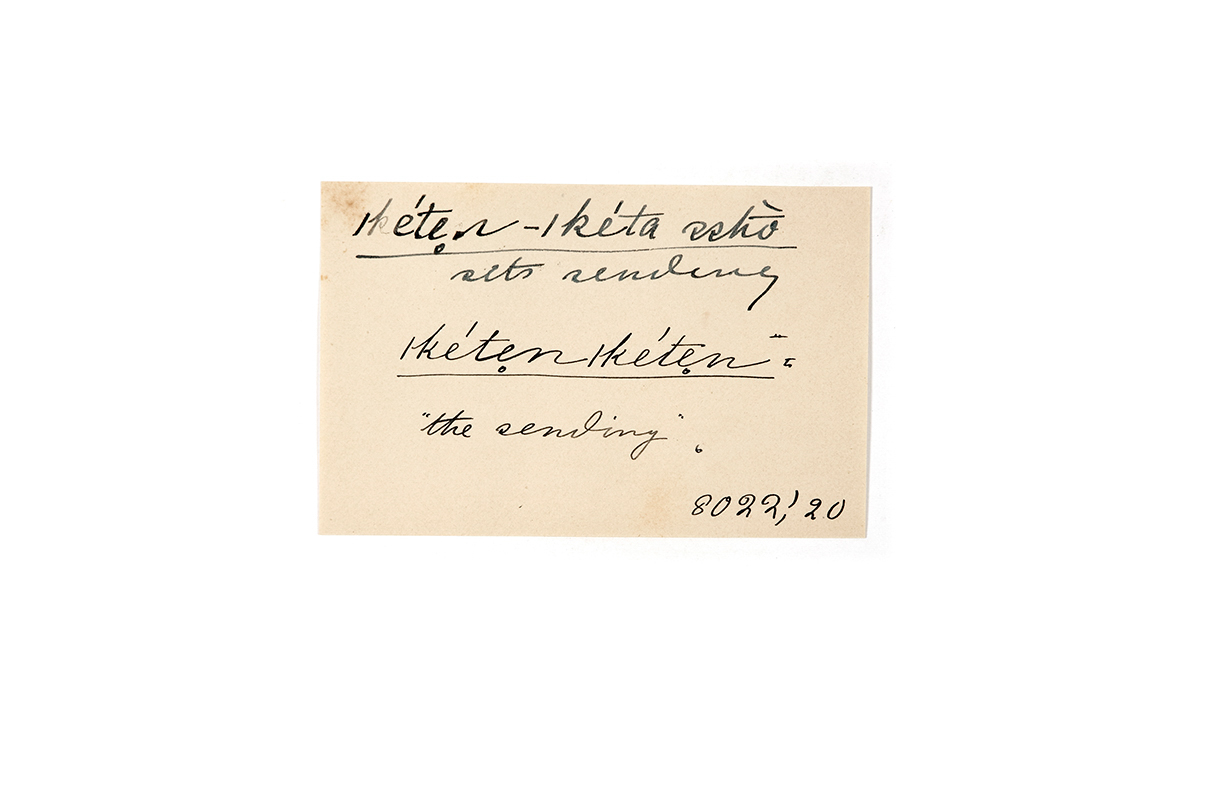 ǀkétẹn - ǀkéta sshṑ
sets sending
ǀkétẹn ǀkétẹn" =
"the sending".
8022,' 20